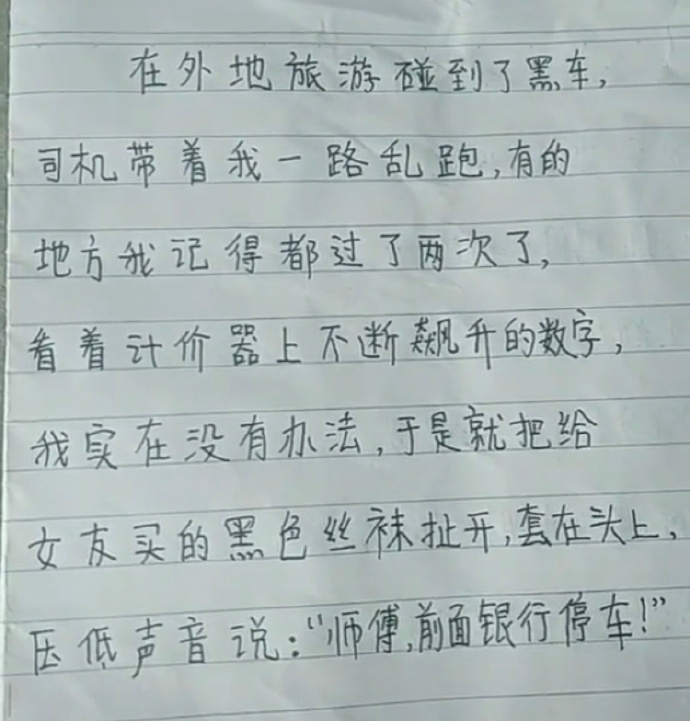 在外地旅游碰到了黑车,
司机带着我一路乱跑,有的
地方我记得都过了两次了,
看着计价器上不断飙升的数字,
我实在没有办法,于是就把给
女友买的黑色丝袜扯开,套在头上,
压低声音说:“师傅,前面银行停车!”